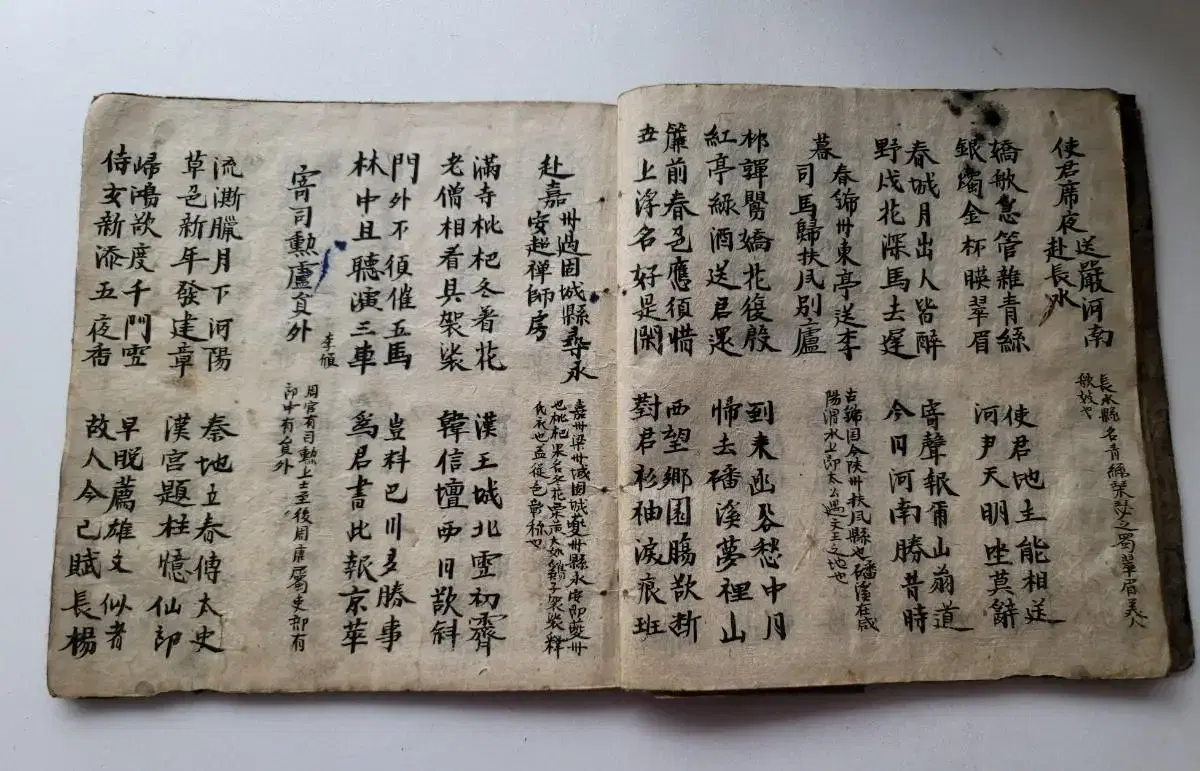 使君席夜送嚴河南
赴長水
長水縣名青絲琴瑟之翠眉美人
歌妓也
嬌歌急管雜青絲
銀燭金杯暎翠眉
使君地主能相送
河尹天明坐莫辭
春城月出人皆醉
野戍花深馬去遲
寄聲報爾山翁道
今日河南勝昔時
暮春虢州東亭送李
司馬歸扶风別廬
古虢国今陝州扶风縣也磻溪在咸
陽渭水上即太公遇文王之地也
柳嚲鶯嬌花復殷
紅亭綠酒送君還
到来函谷愁中月
帰去磻溪夢裡山
簾前春色應須惜
世上浮名好是閑
西望鄉園腸欲斷
對君衫袖淚痕班
赴嘉州過固城縣尋永
安超禅師房
嘉州梁州城固城州縣永度即夔州
也枇杷果名冬花葉黄大如雞子袈裟釋
氏衣也
滿寺枇杷冬着花
老僧相看具袈裟
漢王城北雪初霽
韓信壇西日欲斜
門外不須催五馬
林中且聽演三車
豈料巴川多勝事
為君書此報京華
寄司勳盧員外
李頎
周官有司勳上士至後周唐屬吏部有
郎中有員外
流澌臘月下河陽
草色新年發建章
秦地立春傳太史
漢宮題柱憶仙郎
歸鴻欲度千門雪
侍女新添五夜香
早脱薦雄文似者
故人今已賦長楊